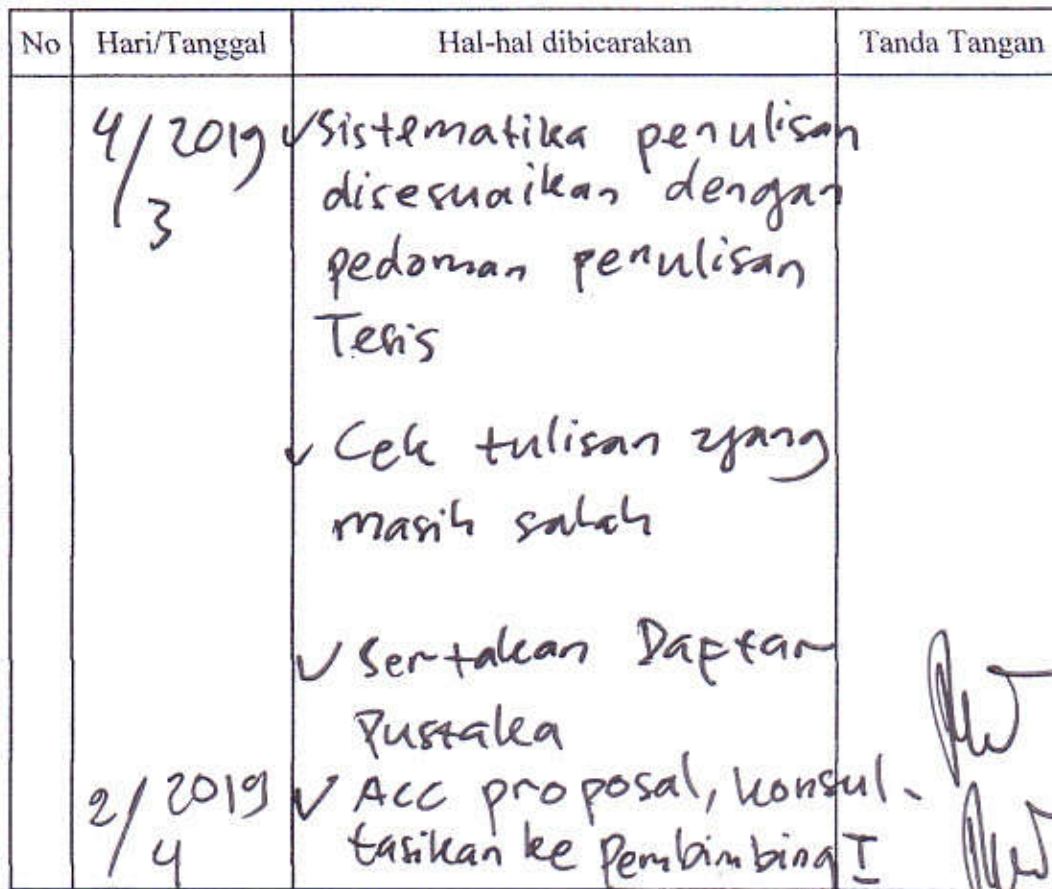 No Hari/Tanggal Hal-hal dibicarakan Tanda Tangan
4/3 2019 ✓ Sistematika penulisan
disesuaikan dengan
pedoman penulisan
Tesis
✓ Cek tulisan yang
masih salah
✓ Sertakan Daftar
Pustaka
2/4 2019 ✓ Acc proposal, konsul-
tasikan ke Pembimbing I